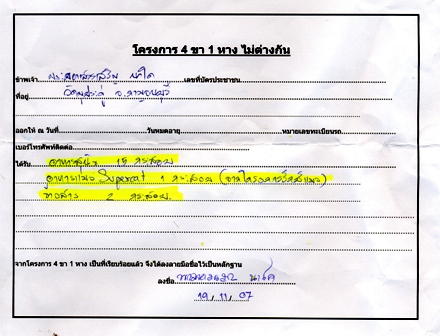 โครงการ 4 ขา 1 หาง ไม่ต่างกัน
ข้าพเจ้า เลขที่บัตรประชาชน
ที่อยู่ จ.กาญจนบุรี
ออกให้ ณ วันที่ วันหมดอายุ หมายเลขทะเบียนรถ
เบอร์โทรศัพท์ติดต่อ
ได้รับ อาหารสุนัข 15 กระสอบ
อาหารแมว Supercat 1 กระสอบ
ข้าวสาร 2 กระสอบ
จากโครงการ 4 ขา 1 หาง เป็นที่เรียบร้อยแล้ว จึงได้ลงลายมือชื่อไว้เป็นหลักฐาน
ลงชื่อ
19 / 11 / 07